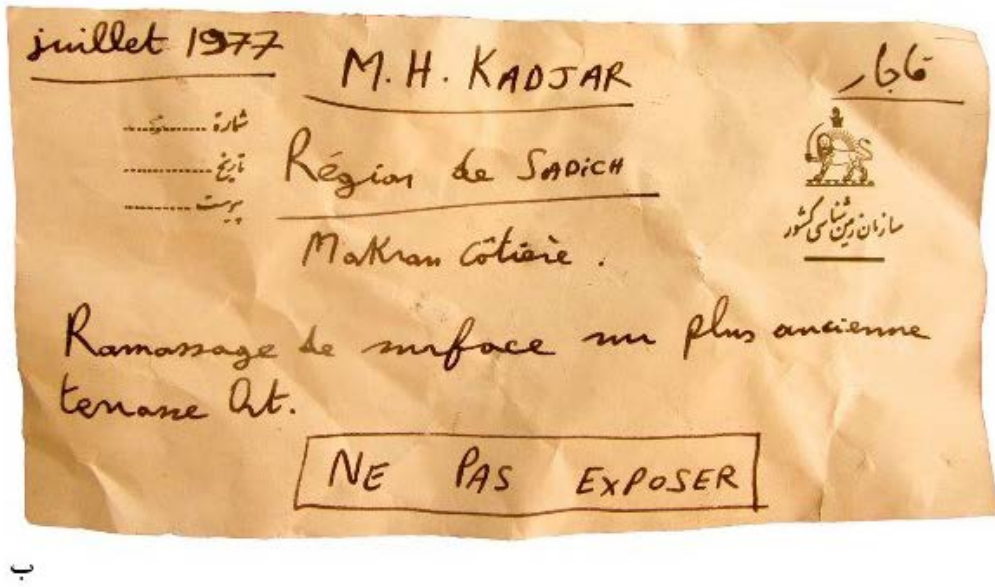 juillet 1977
M. H. KADJAR
قاجار
شمارة ............
تاریخ ............
پیوست ............
Région de SADiCH
سازمان زمین شناسی کشور
Makran côtière .
Ramassage de surface sur plus ancienne
terrasse Qt.
NE PAS EXPOSER
ب